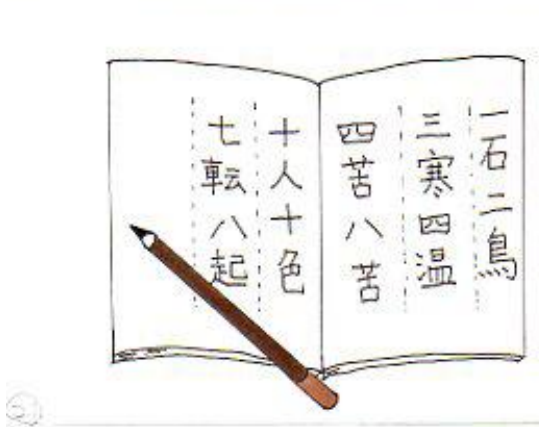 一石二鳥
三寒四温
四苦八苦
十人十色
七転八起